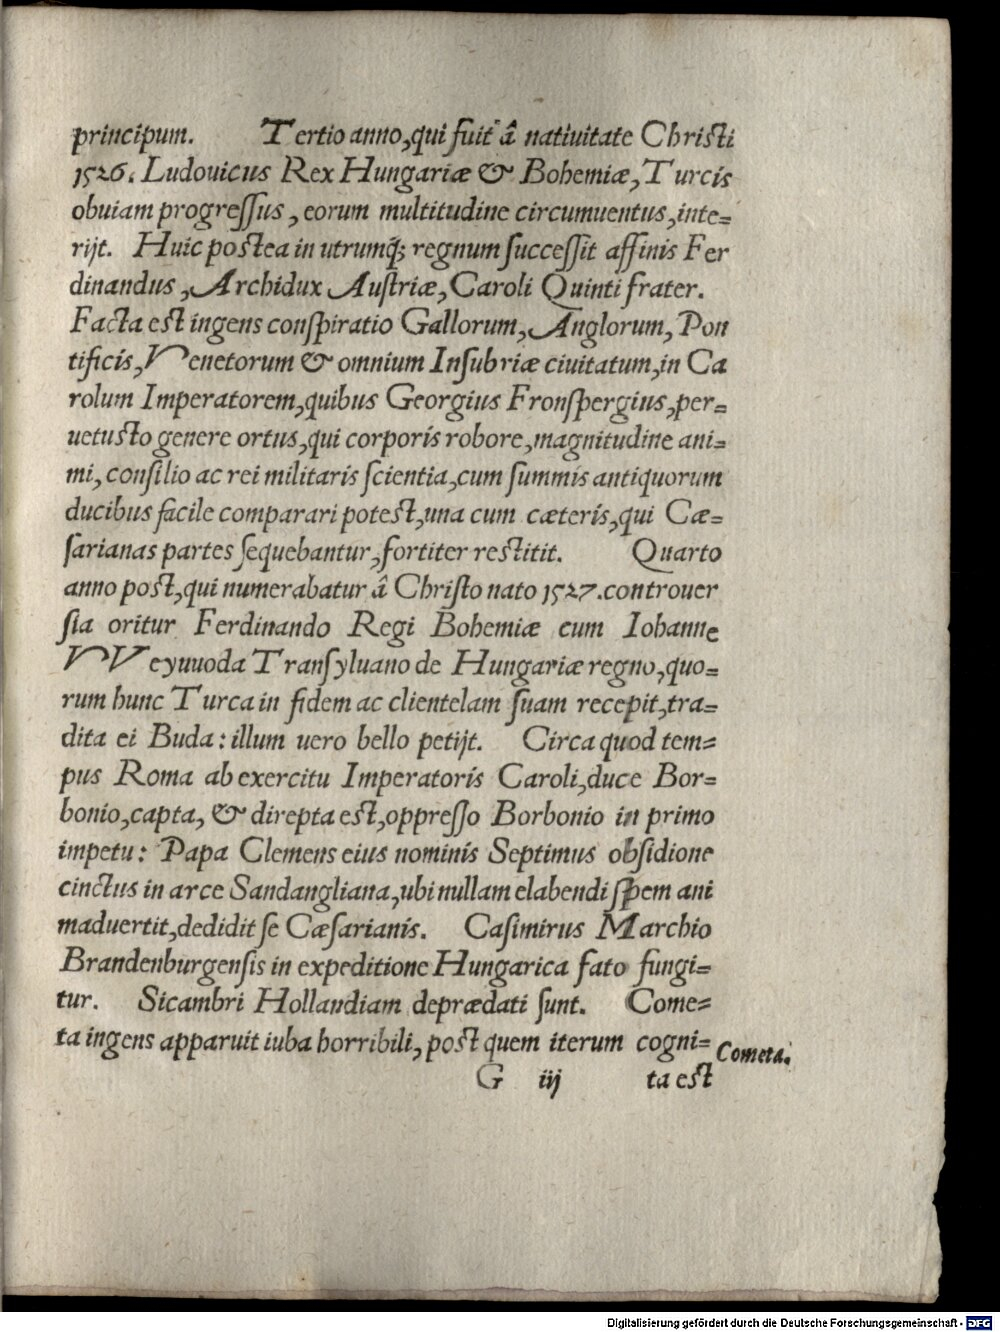 principum. Tertio anno, qui fuit â natiuitate Christi
1526. Ludouicus Rex Hungariæ & Bohemiæ, Turcis
obuiam progreſſus, eorum multitudine circumuentus, inte=
rijt. Huic postea in utrumq; regnum ſucceſſit affinis Fer
dinandus, Archidux Auſtriæ, Caroli Quinti frater.
Facta est ingens conſpiratio Gallorum, Anglorum, Pon
tificis, Venetorum & omnium Inſubriæ ciuitatum, in Ca
rolum Imperatorem, quibus Georgius Fronſpergius, per=
uetusto genere ortus, qui corporis robore, magnitudine ani=
mi, conſilio ac rei militaris ſcientia, cum ſummis antiquorum
ducibus facile comparari potest, una cum cæteris, qui Cæ=
ſarianas partes ſequebantur, fortiter restitit. Quarto
anno post, qui numerabatur â Chriſto nato 1527. controuer
ſia oritur Ferdinando Regi Bohemiæ cum Iohanne
VVeyuuoda Tranſyluano de Hungariæ regno, quo=
rum hunc Turca in fidem ac clientelam ſuam recepit, tra=
dita ei Buda: illum uero bello petijt. Circa quod tem=
pus Roma ab exercitu Imperatoris Caroli, duce Bor=
bonio, capta, & direpta est, oppreſſo Borbonio in primo
impetu: Papa Clemens eius nominis Septimus obſidione
cinctus in arce Sandangliana, ubi nullam elabendi ſpem ani
maduertit, dedidit ſe Cæſarianis. Caſimirus Marchio
Brandenburgenſis in expeditione Hungarica fato fungi=
tur. Sicambri Hollandiam deprædati ſunt. Come=
ta ingens apparuit iuba horribili, post quem iterum cogni=
Cometa.
G iij ta est
Digitalisierung gefördert durch die Deutsche Forschungsgemeinschaft - DFG